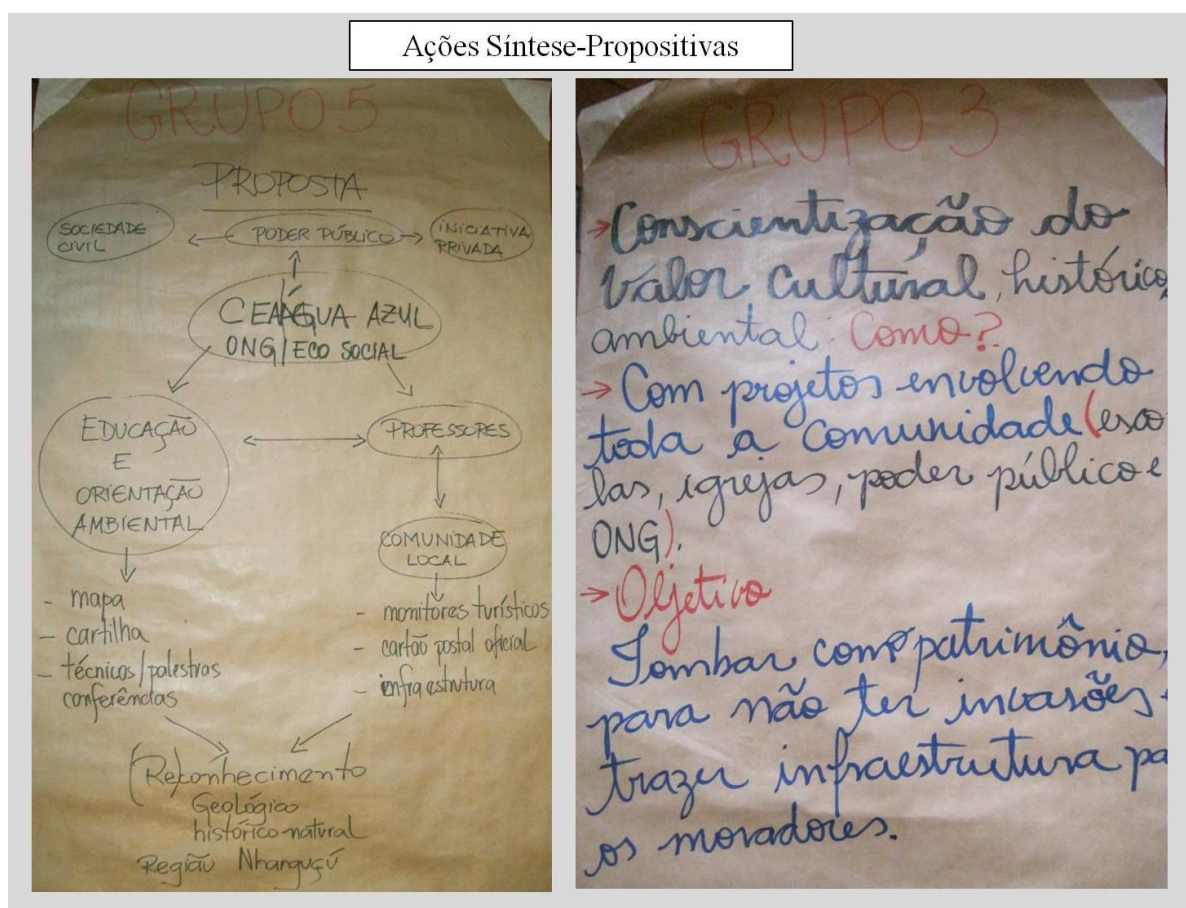 Ações Síntese-Propositivas
GRUPO 5
PROPOSTA
SOCIEDADE
CIVIL
PODER PÚBLICO
INICIATIVA
PRIVADA
CEAÁGUA AZUL
ONG/ECO SOCIAL
EDUCAÇÃO
E
ORIENTAÇÃO
AMBIENTAL
PROFESSORES
COMUNIDADE
LOCAL
- mapa
- cartilha
- técnicos/palestras
conferências
- monitores turísticos
- cartão postal oficial
- infra estrutura
(Reconhecimento
Geológico
histórico-natural
Região Nhanguçú
GRUPO 3
→ Conscientização do
valor cultural, histórico,
ambiental: Como?
→ Com projetos envolvendo
toda a comunidade (esco
las, igrejas, poder público e
ONG).
→ Objetivo
Tombar como patrimônio,
para não ter invasões.
trazer infraestrutura pa
os moradores.